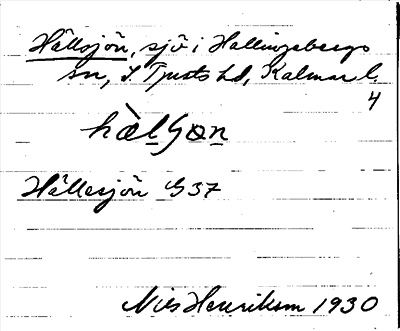 Hällsjön, sjö i Hallingebergs
sn, S. Tjusts hd, Kalmar l.
4
Hällesjön G 37
Nils Henrikson 1930